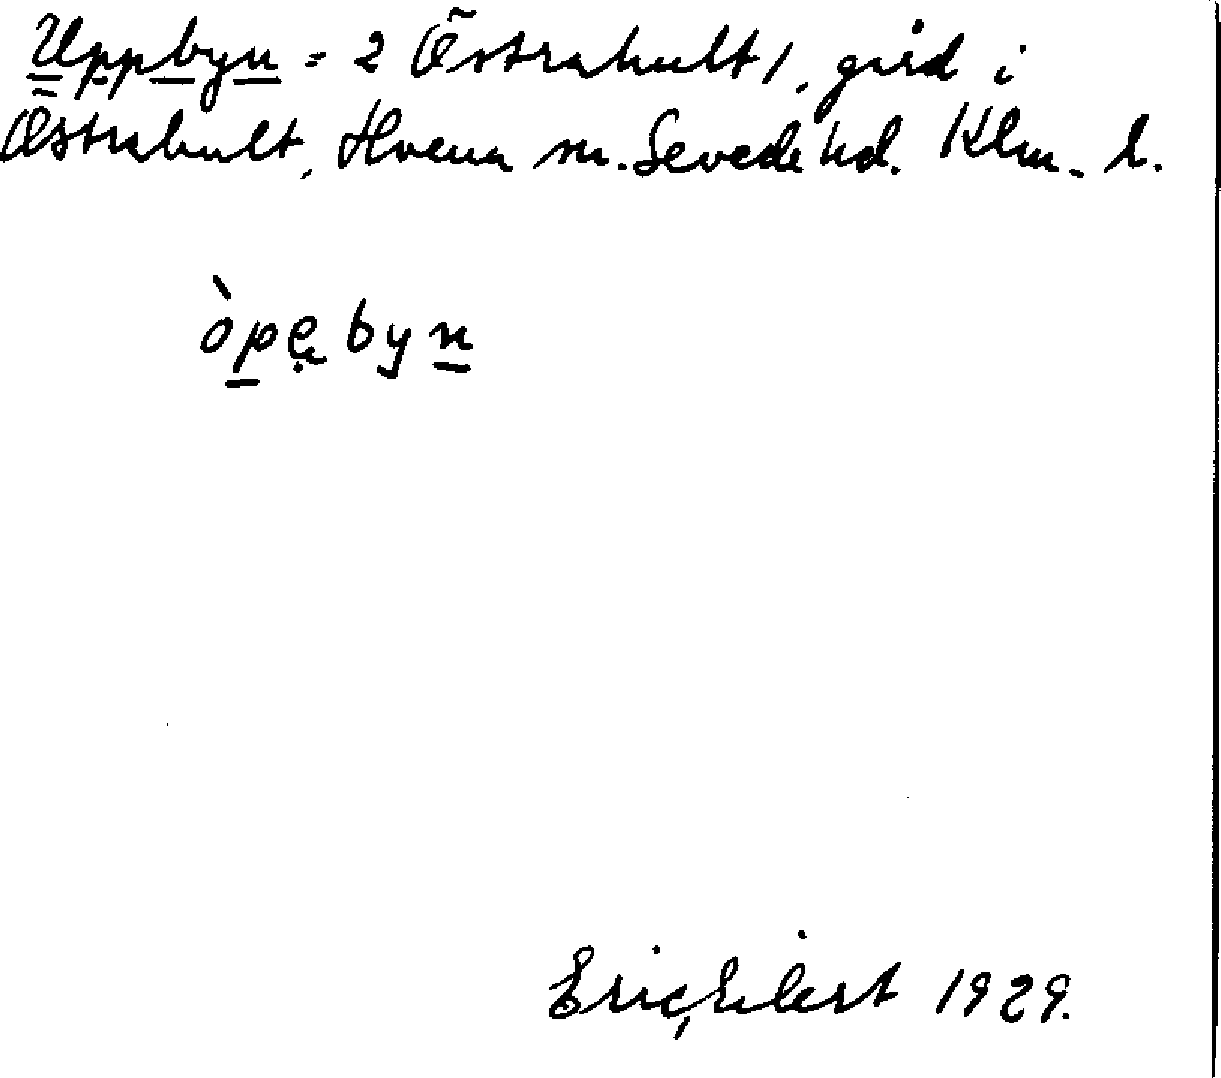 Uppbyn = 2 Östrahult 1, gård i
Östrahult, Hvena sn. Sevede hd. Klm. l.
òpe̤ byn
Eric Eilert 1929.